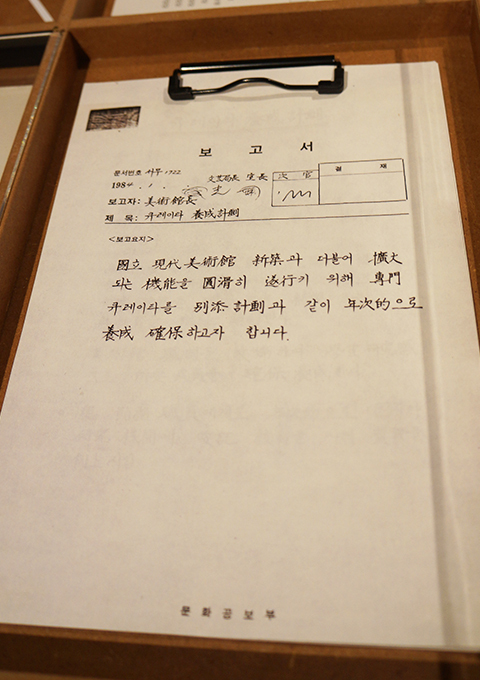 보 고 서
문서번호 서무 1722
文芸局長 室長 次官 결 재
1984. . .
보고자: 美術館長
제 목: 큐레이타 養成計劃
<보고요지>
國立 現代美術館 新築과 더불어 擴大
되는 機能을 圓滑히 遂行키 위해 專門
큐레이타를 別添計劃과 같이 年次的으로
養成 確保하고자 합니다.
문 화 공 보 부